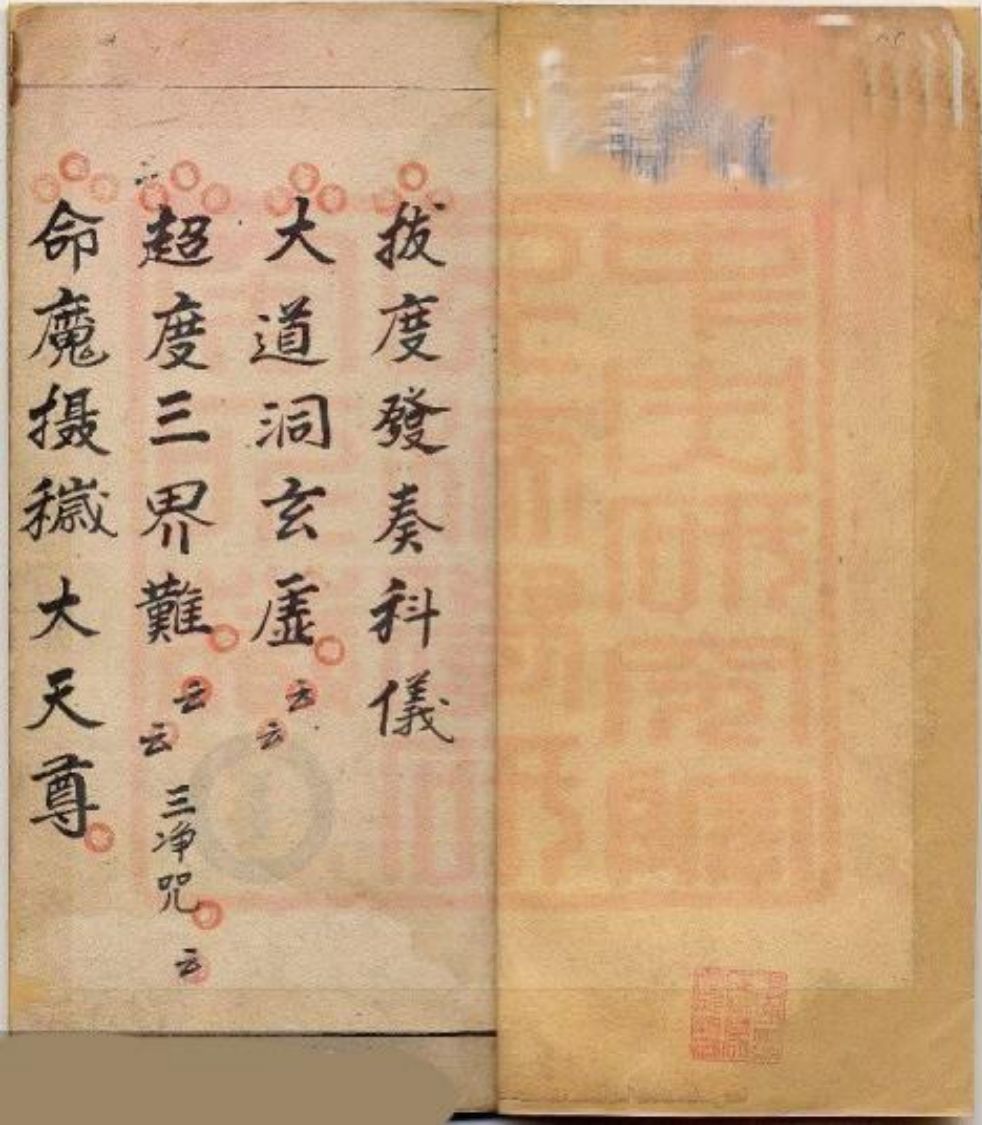 拔度發奏科儀
大道洞玄虛云云
超度三界難云云 三净咒云
命魔摄穢大天尊